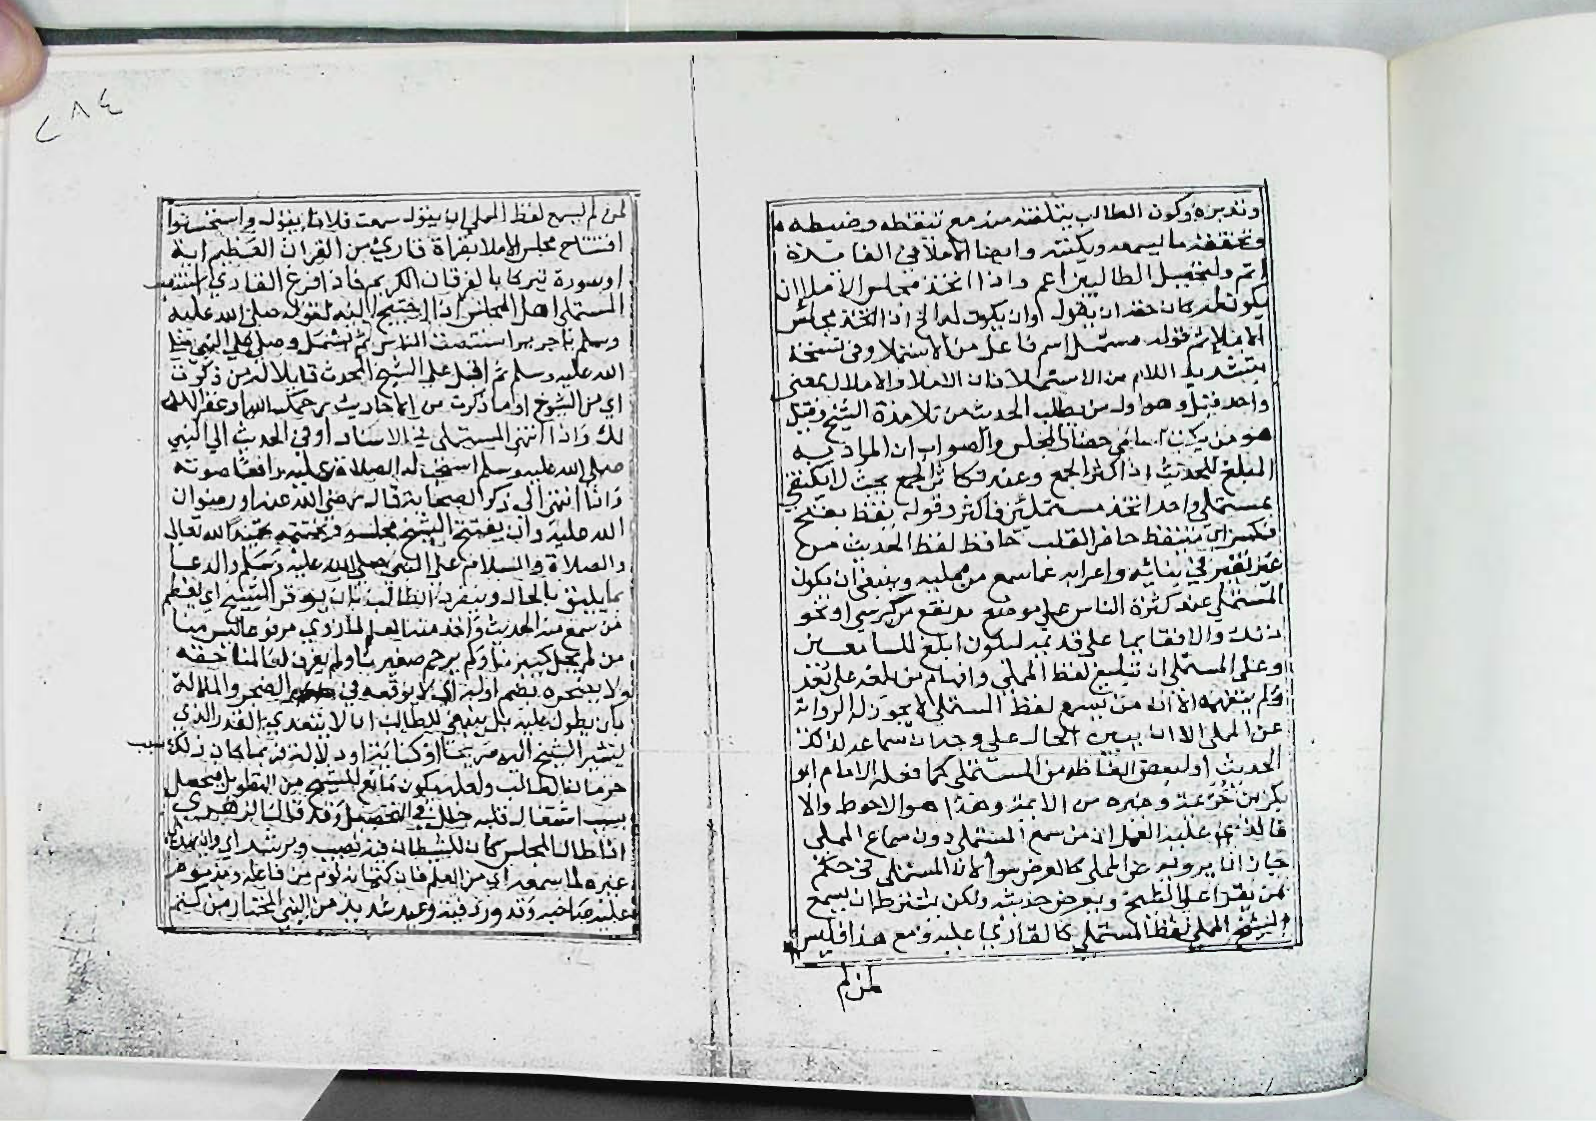 وتدبره وكون الطالب يتلقنه منه مع تيقظه وضبطه
وتحققه ما يسمعه ويكتبه وايضا الاملا في الفايدة
اتم ولتحصيل الطالبين اعم واذا اتخذ مجلس الاملا ان
يكون له كان حقه ان يقول او ان يكون له اي اذا اتخذ مجلس
الاملا ثم قوله مستمل اسم فاعل من الاستملا وفي نسخة
بتشديد اللام من الاستملال فان الاملا والاملال بمعنى
واحد قيل وهو اول من يطلب الحديث من تلامذة الشيخ وقيل
هو من يكتب اسامي حضار المجلس والصواب ان المراد به
المبلغ للحديث اذا كثر الجمع وعند تكاثر الجمع بحيث لا يكتفي
بمستملي واحد اتخذ مستمليين فاكثر وقوله يقظ بفتح
فكسر اي متيقظ حاضر القلب حافظ لفظ الحديث من
غير تغيير في بنائه واعرابه عما سمع من ممليه وينبغي ان يكون
المستملي عند كثرة الناس على موضع مرتفع من كرسي او نحو
ذلك والا فقايما على قدميه ليكون ابلغ للسامعين
وعلى المستملي ان تبليغ لفظ المملي وافهام من بلغه على بعد
ولم يتفهمه الا انه من يسمع لفظ المستملي لا يجوز له الرواية
عن المملي الا ان يبين الحال على وجدان سماعه لذلك
الحديث او لبعض الفاظه من المستملي كما فعله الامام ابو
بكر بن خزيمة وغيره من الايمة وهذا هو الاحوط والا
فالذي عليه العمل ان من سمع المستملي دون سماع المملي
جاز ان يرويه عن المملي كالعرض سوا لان المستملي في حكم
من يقرا على الشيخ ويعرض حديثه ولكن يشترط ان يسمع
الشيخ المملي لفظ المستملي كالقاري عليه ومع هذا فليس
لمن لم
٢٨٤
لمن لم يسمع لفظ المملي ان يقول سمعت فلانا يقول واستحسنوا
افتتاح مجلس الاملا بقراة قاري من القران العظيم اية
او سورة تبركا بالفرقان الكريم فاذا فرغ القاري استنصت
المستملي اهل المجلس اذا احتيج اليه لقوله صلى الله عليه
وسلم يا جرير استنصت الناس ثم بسمل وصلى على النبي صلى
الله عليه وسلم ثم اقبل على الشيخ المحدث قايلا له من ذكرت
اي من الشيوخ او ما ذكرت من الاحاديث رحمك الله او غفر الله
لك واذا انتهى المستملي في الاسناد او في الحديث الي النبي
صلى الله عليه وسلم استحب له الصلاة عليه رافعا صوته
واذا انتهى الى ذكر الصحابة قال رضي الله عنه او رضوان
الله عليه وان يفتتح الشيخ مجلسه ويختتمه بحمد الله تعالى
والصلاة والسلام على النبي صلى الله عليه وسلم والدعا
بما يليق بالحال وينفرد الطالب بان يوقر الشيخ اي يعظم
من سمع منه الحديث واخذ منه العلم لما روي مرفوعا ليس منا
من لم يجل كبيرنا ولم يرحم صغيرنا ولم يعرف لعالمنا حقه
ولا يضجره بضم اوله اي لا يوقعه في الضجر والملالة
بان يطول عليه بل ينبغي للطالب ان لا يتعدى القدر الذي
يشير الشيخ اليه صريحا او كناية او دلالة فربما كان ذلك سبب
حرمانا لطالب ولعله يكون مانع للشيخ من التطويل فيحصل
بسبب اشتغال قلبه خلل في التحصيل وقد قال الزهري
اذا طال المجلس كان للشيطان فيه نصيب ويرشد اي
غيره لما سمعه اي من العلم فان كتمانه لوم من فاعله ومذموم
عليه صاحبه وقد ورد فيه وعيد شديد من النبي المختار من كتم